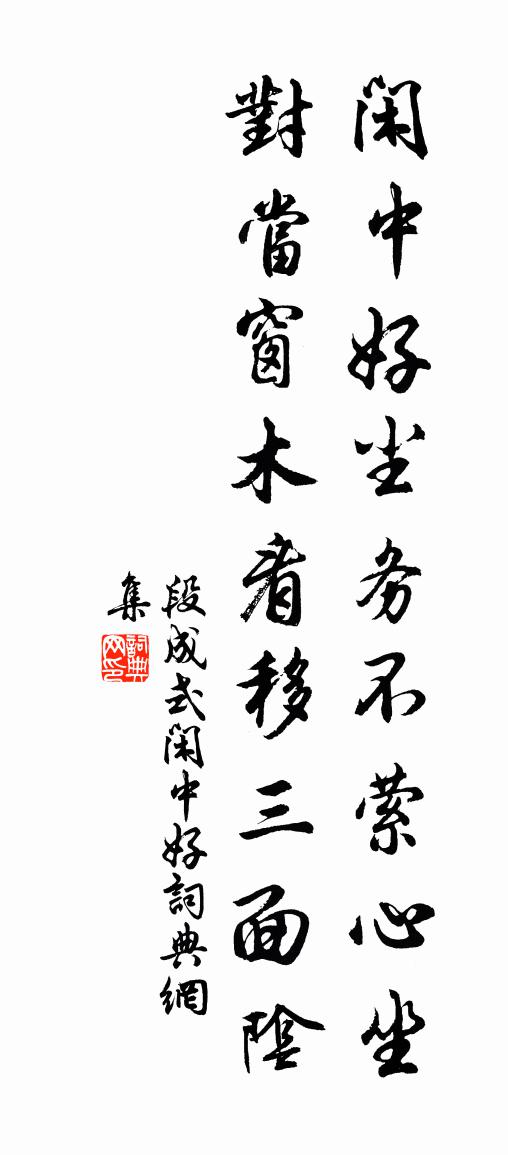 闲中好尘务不萦心坐
對當窗木看移三面陰
段成式闲中好詞典網
集
詞典网印